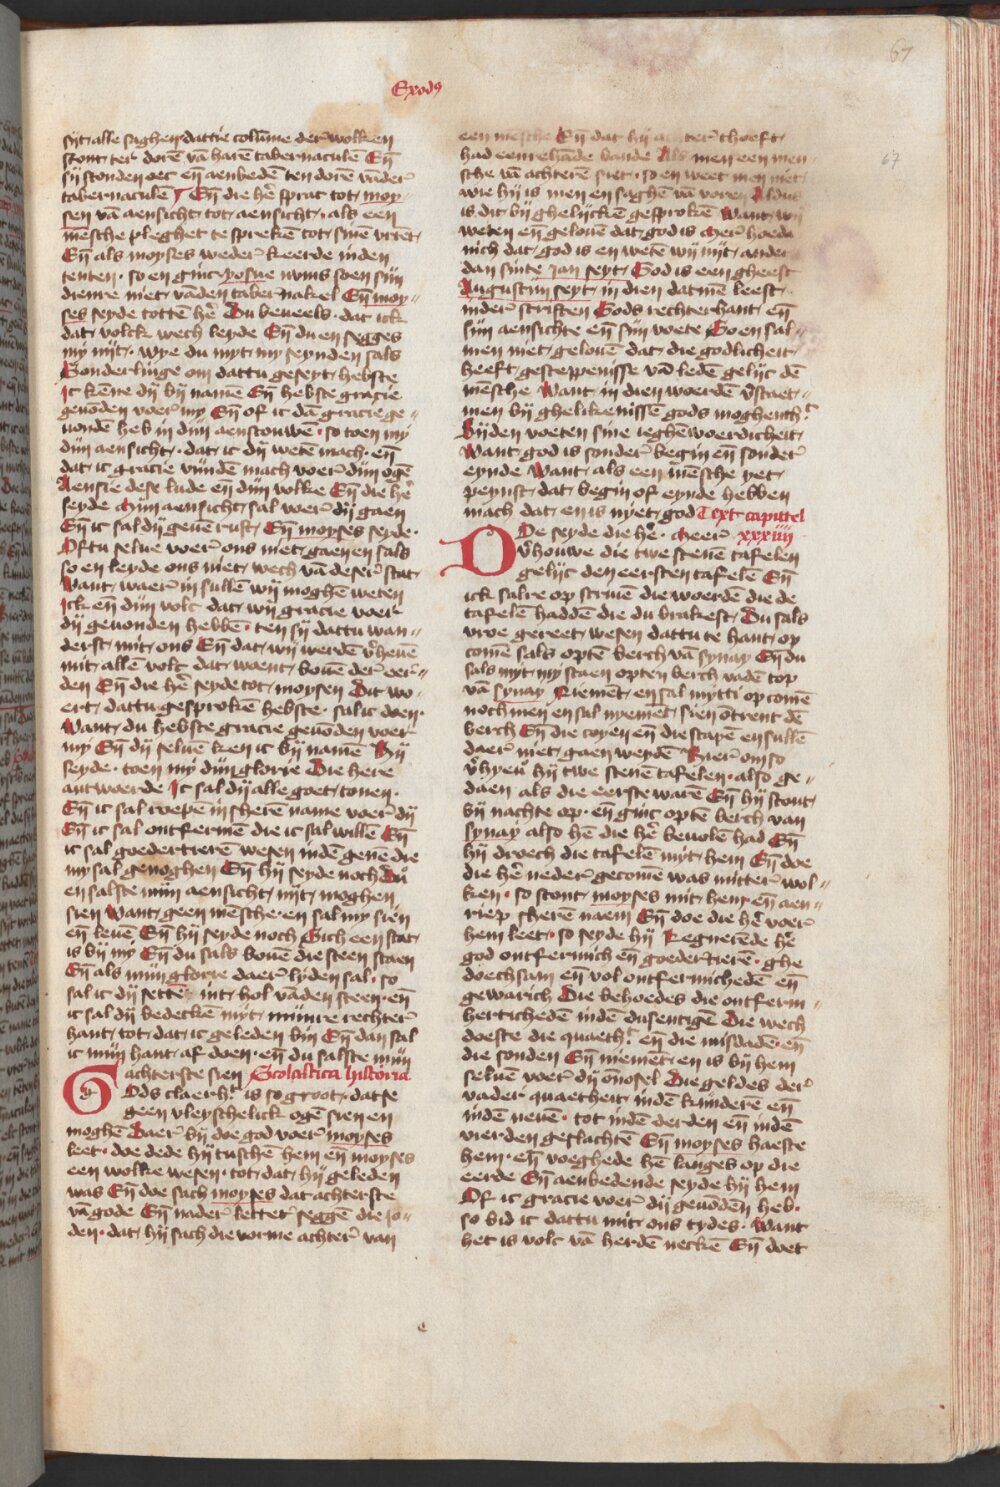 67
Exodus
syt alle saghen dattie colūme der wolken
stont ter dorē vā harēn tabernaculē Eñ
sij stonden oec eñ aenbedē ten dorē vāder
tabernaculē Eñ die hē sprac tot moy
sen vā aensicht tot aensicht · als een
mēsche pleghet te sprekē tot sinē vrīet
Eñ als moyses weder keerde inden
tenten · so en ginc yosue nums soen sijn
dienre niet vāden tabernakel Eñ moy-
ses seyde totten hē Du beveels · dat ick
dat volck wech leyde Eñ du en segges
my nyt · wye du myt my seynden sals
Sonderlinge om dattu geseyt hebste
Ic kēne dy bij namē Eñ hebste gracie
gevōden voer my Eñ of ic dā gracie ge-
vondē heb in dijn aenscouwē · so toen my
dijn aensicht · dat ic dij wetē mach · eñ
dat ic gracie vijndē mach voer dijn ogē
Aensie dese lude eñ dijn volke Eñ die hē
seyde Mijn aensicht sal voer dij gaen
Eñ ic sal dij gevē rust Eñ moyses seyde ·
Oftu selve voer ons niet gaen en sals
so en leyde ons niet wech vā deser stat
Want waer in sullē wij moghē weten
Ick eñ dijn volc dat wij gracie voer
dij gevonden hebbē · ten sij dattu wan-
derst mit ons Eñ dat wij werdē v̄hevē
mit allē volc dat woent bovē der eer-
den Eñ die hē seyde tot moysen Dit wo-
ert dattu gesprokē hebste · sal ic doen ·
Want du hebste gracie gevōden voer
my Eñ dij selvē ken ic bij namē Hij
seyde · toen mij dijn glorie Die here
antwoerde Ic sal dij alle goet tonen ·
Eñ ic sal roepē in sherē name voer dij
Eñ ic sal ontfermē die ic sal willē Eñ
ic sal goedertierē wesen indē gene die
my sal genoghen Eñ hij seyde noch Du
en salste mijn aensicht nyt moghen
sien Want geen mēsche en sal my sien
eñ levē Eñ hij seyde noch Sich een stat
is bij mij Eñ du sals bovē die steen staen
Eñ als mijn glorie daer lyden sal · so
sal ic dij settē int hol vāden steen · eñ
ic sal dij bedeckē myt mijnre rechter
hant tot dat ic geleden bin Eñ dan sal
ic mijn hant af doen · eñ du salste mijn
achterste sien Scolastica historia
Gods claerh̄ is so groot · datse
geen vleyschelick ogē sien en
moghē Daer bij doe god voer moyses
leet · doe dede hij tuschē hem eñ moyses
een wolke wesen · tot dat hij geleden
was Eñ doe sach moyses dat achterste
vā gode Eñ nader lettet seggē die jo-
den · dat hij sach die vorme achter van
een mēsche Eñ dat hij achter thoeft
had eenrehāde bande Als men een men-
sche vā achterē siet · so en weet men niet
wie hij is men en saghē vā voren Aldus
is dit bij ghelijckē gesprokē Want wij
weten eñ gelovē dat god is Mer hoeda
nich dat god is en wetē wij nyt ander
dan sinte jan seyt God is een gheest
Augustijn seyt in dien datmē leest
inder scriften Gods rechterhant eñ
sijn aensichte eñ sijn voete So en sal
men niet gelovē dat die godlicheit
heeft gesteppenisse vā ledē gelijc dē
mēsche Want in dien woerdē v̄staet
men bij ghelikenissē gods moghenth̄
Bijden voeten sine ieghēwoerdicheit
Want god is sonder begin eñ sonder
eynde Want als een mēsche yet
peynst dat begin of eynde hebben
mach dat en is nyet god Text capittel
xxxiiij
Doe seyde die hē · Meer
v̄houwe die twe stenē tafelen
gelijc den eersten tafelē Eñ
ick salre op scrivē die woerdē die de
tafelē haddē die du brakest Du sals
vroe gereet wesen dattu te hant op
comē sals optē berch vā synay Eñ du
sals myt my staen opten berch vādē top
vā synay Niemēt en sal mytti op comē
noch men en sal nyemēt sien ōtrent dē
berch Eñ die coyen eñ die scapē en sullē
daer niet gaen weydē Hier om so
v̄hyeu hij twe stenē tafelen · also ge-
daen als die eerste warē Eñ hij stont
bij nachte op · eñ ginc optē berch van
synay also hē die hē bevolē had Eñ
hij droech die tafelē myt hem Eñ doe
die hē neder gecomē was mitter wol-
ken · so stont moyses mit hem eñ aen-
riep sherē naem Eñ doe die hē voer
hem leet · so seyde hij Regnerēde hē
god ontfermich eñ goedertierē · ghe
doechsam eñ vol ontfermichedē eñ
gewarich Die behoedes die ontferm-
herticheden indē dusentigē Die wech
doeste die quaeth̄ eñ die misdadē · eñ
die sonden Eñ niemēt en is bij hem
selvē voer dij ōnosel Die geldes der
vader quaetheit indē kinderē eñ
indē nevē · tot indē derden eñ indē
vierden geslachtē Eñ moyses haeste
hem · eñ voeghede hē langes op die
eerde Eñ aenbedende seyde hij hem
Of ic gracie voer dij gevōdē heb ·
so bid ic dattu mit ons tydes · Want
het is volc vā herdē neckē Eñ doet
67